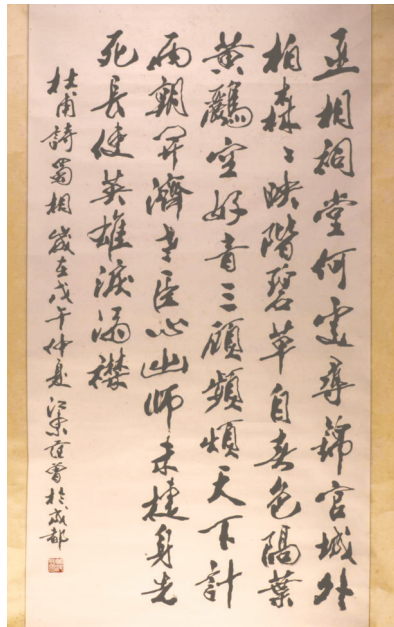 丞相祠堂何處尋錦官城外
柏森〻映階碧草自春色隔葉
黃鸝空好音三顧頻煩天下計
兩朝开濟老臣心出師未捷身先
死長使英雄淚滿襟
杜甫詩蜀相歲在戊午仲夏江東范曾於成都